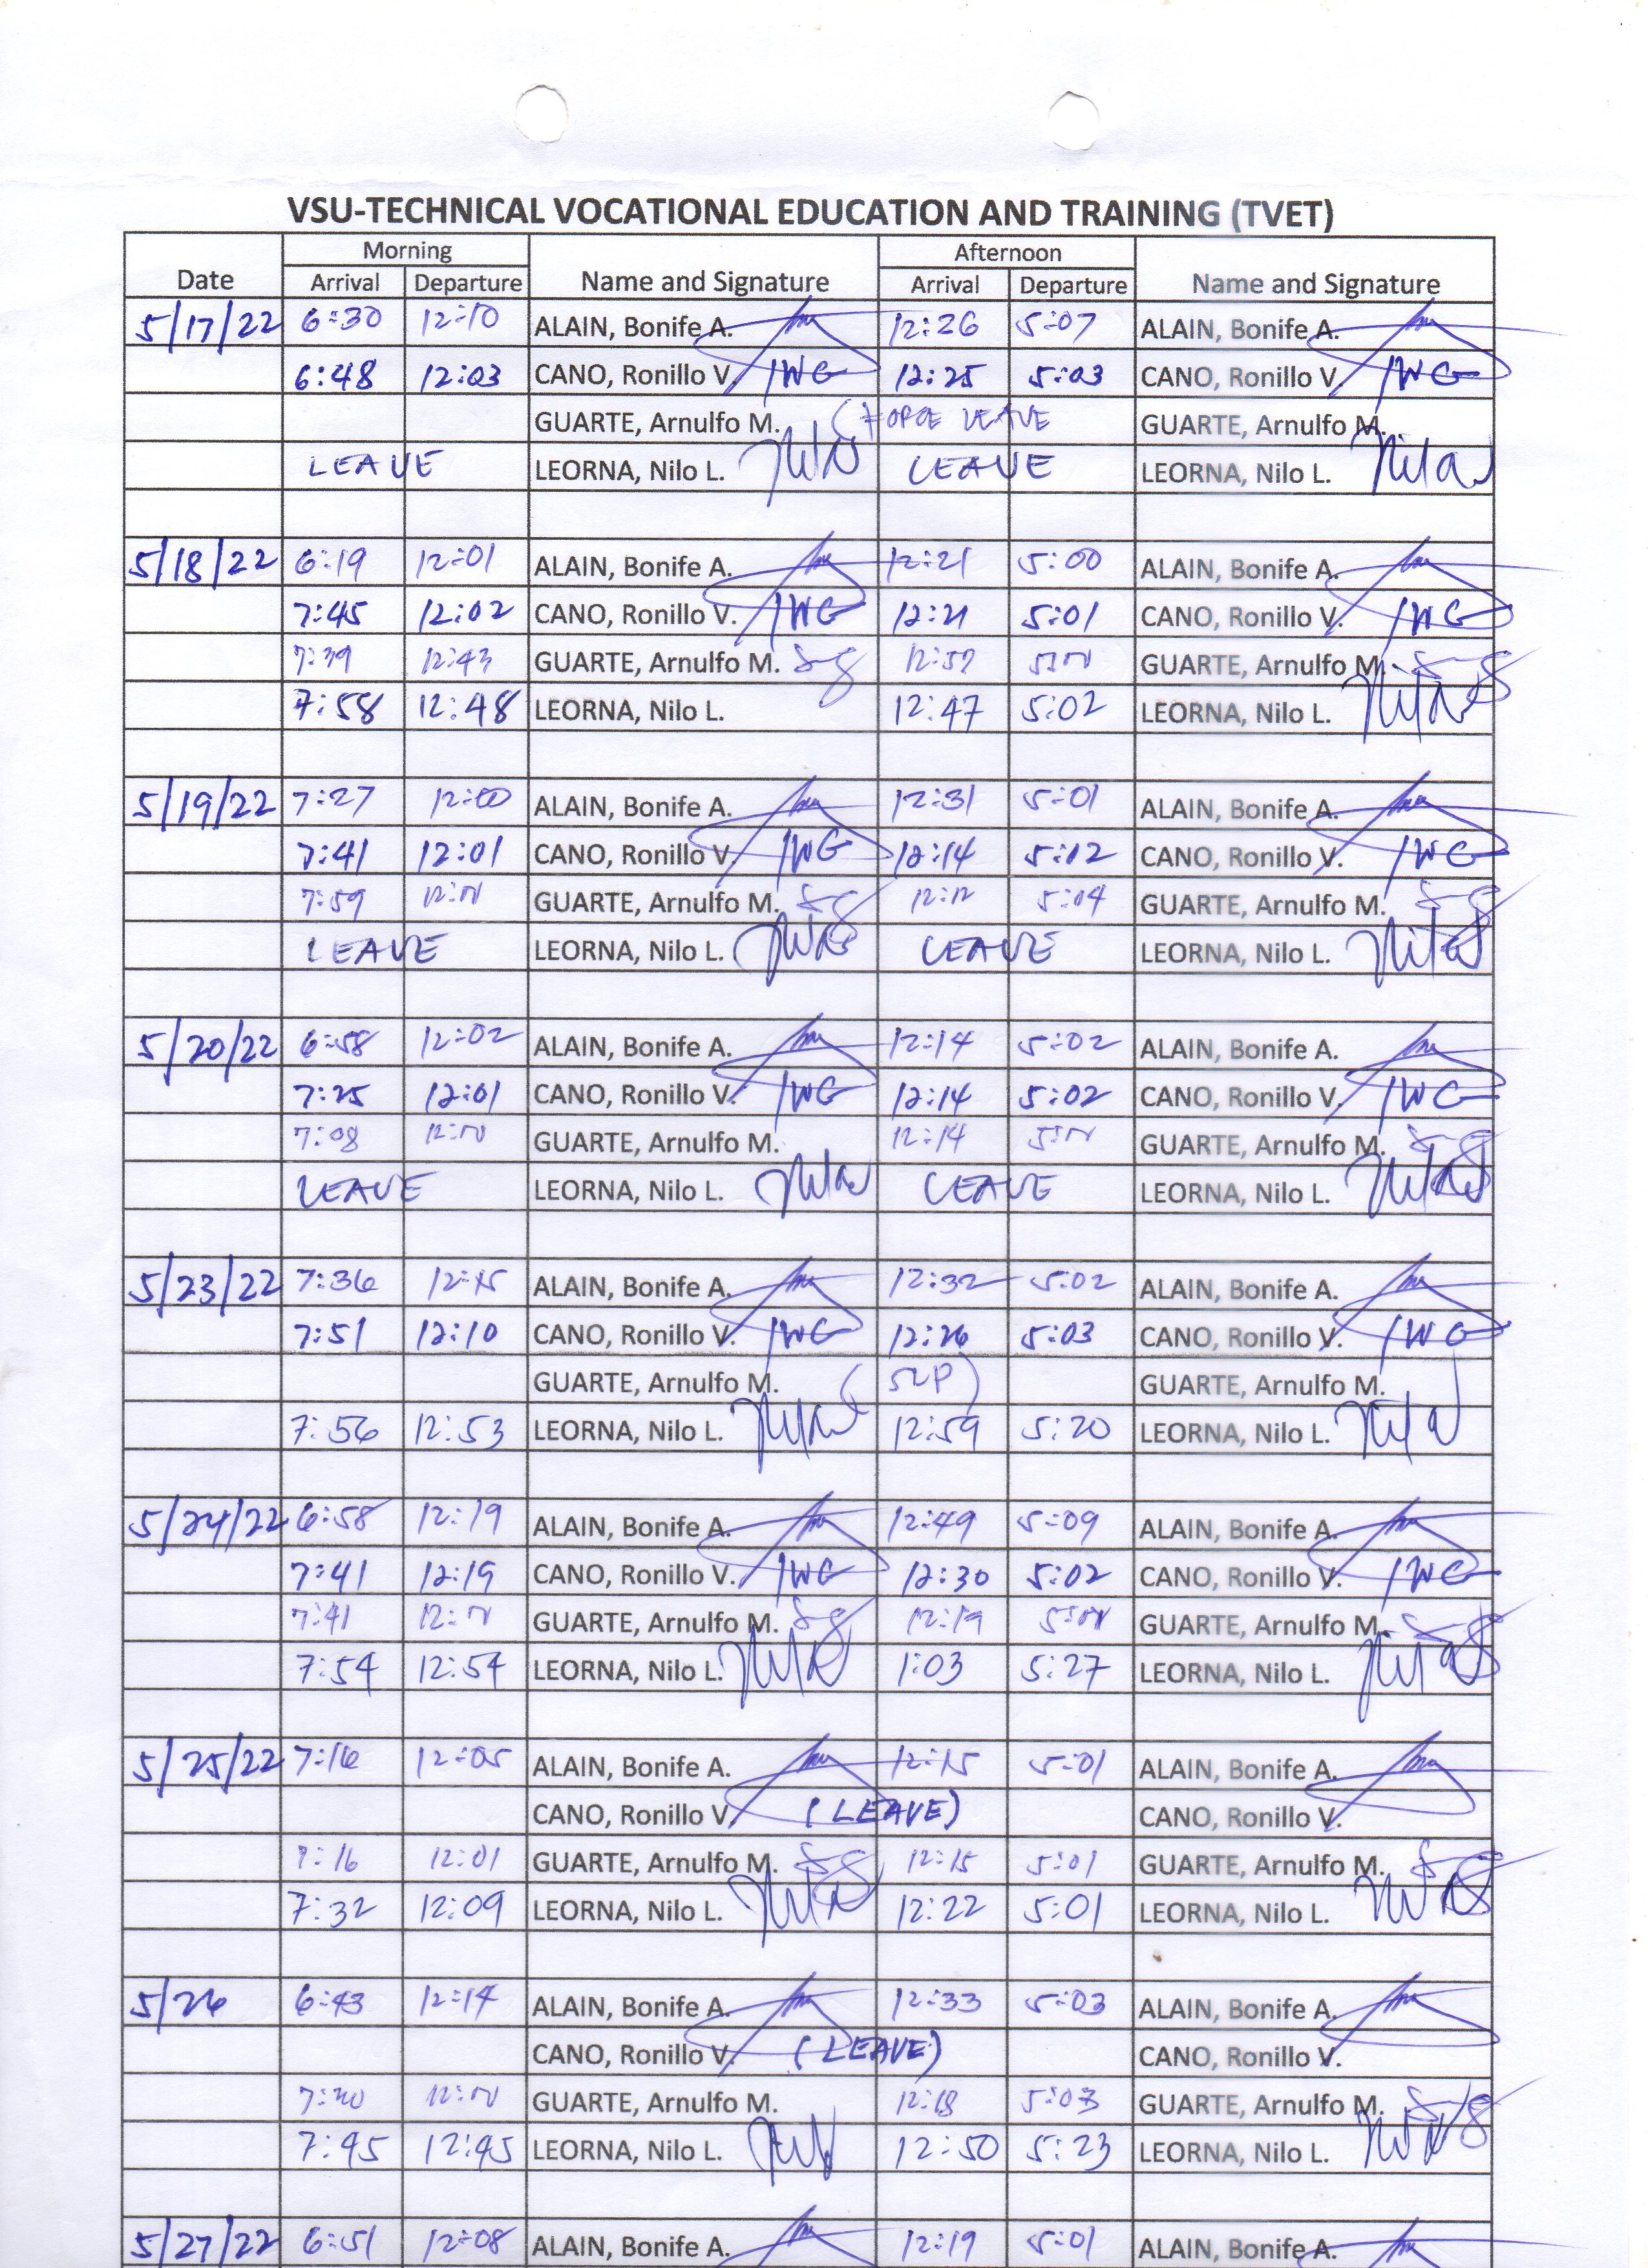 VSU-TECHNICAL VOCATIONAL EDUCATION AND TRAINING (TVET)
Morning Afternoon
Date Arrival Departure Name and Signature Arrival Departure Name and Signature
5/17/22 6:30 12:10 ALAIN, Bonife A. 12:26 5:07 ALAIN, Bonife A.
6:48 12:03 CANO, Ronillo V. 12:25 5:03 CANO, Ronillo V.
GUARTE, Arnulfo M. LEAVE GUARTE, Arnulfo M.
LEAVE LEORNA, Nilo L. LEAVE LEORNA, Nilo L.
5/18/22 6:19 12:01 ALAIN, Bonife A. 12:21 5:00 ALAIN, Bonife A.
7:45 12:02 CANO, Ronillo V. 12:21 5:01 CANO, Ronillo V.
7:39 12:43 GUARTE, Arnulfo M. GUARTE, Arnulfo M.
7:58 12:48 LEORNA, Nilo L. 12:47 5:02 LEORNA, Nilo L.
5/19/22 7:27 12:00 ALAIN, Bonife A. 12:31 5:01 ALAIN, Bonife A.
7:41 12:01 CANO, Ronillo V. 12:14 5:02 CANO, Ronillo V.
7:59 GUARTE, Arnulfo M. 12:12 5:04 GUARTE, Arnulfo M.
LEAVE LEORNA, Nilo L. LEAVE LEORNA, Nilo L.
5/20/22 6:58 12:02 ALAIN, Bonife A. 12:14 5:02 ALAIN, Bonife A.
7:25 12:01 CANO, Ronillo V. 12:14 5:02 CANO, Ronillo V.
7:08 GUARTE, Arnulfo M. 12:14 GUARTE, Arnulfo M.
LEAVE LEORNA, Nilo L. LEAVE LEORNA, Nilo L.
5/23/22 7:36 12:15 ALAIN, Bonife A. 12:32 5:02 ALAIN, Bonife A.
7:51 12:10 CANO, Ronillo V. 12:26 5:03 CANO, Ronillo V.
GUARTE, Arnulfo M. (SLP) GUARTE, Arnulfo M.
7:56 12:53 LEORNA, Nilo L. 12:59 5:20 LEORNA, Nilo L.
5/24/22 6:58 12:19 ALAIN, Bonife A. 12:49 5:09 ALAIN, Bonife A.
7:41 12:19 CANO, Ronillo V. 12:30 5:02 CANO, Ronillo V.
7:41 GUARTE, Arnulfo M. 12:19 GUARTE, Arnulfo M.
7:54 12:54 LEORNA, Nilo L. 1:03 5:27 LEORNA, Nilo L.
5/25/22 7:16 12:05 ALAIN, Bonife A. 12:15 5:01 ALAIN, Bonife A.
CANO, Ronillo V. (LEAVE) CANO, Ronillo V.
7:16 12:01 GUARTE, Arnulfo M. 12:15 5:01 GUARTE, Arnulfo M.
7:32 12:09 LEORNA, Nilo L. 12:22 5:01 LEORNA, Nilo L.
5/26 6:43 12:14 ALAIN, Bonife A. 12:33 5:03 ALAIN, Bonife A.
CANO, Ronillo V. (LEAVE) CANO, Ronillo V.
GUARTE, Arnulfo M. 12:18 5:03 GUARTE, Arnulfo M.
7:45 12:45 LEORNA, Nilo L. 12:50 5:23 LEORNA, Nilo L.
5/27/22 6:51 12:08 ALAIN, Bonife A. 12:19 5:01 ALAIN, Bonife A.